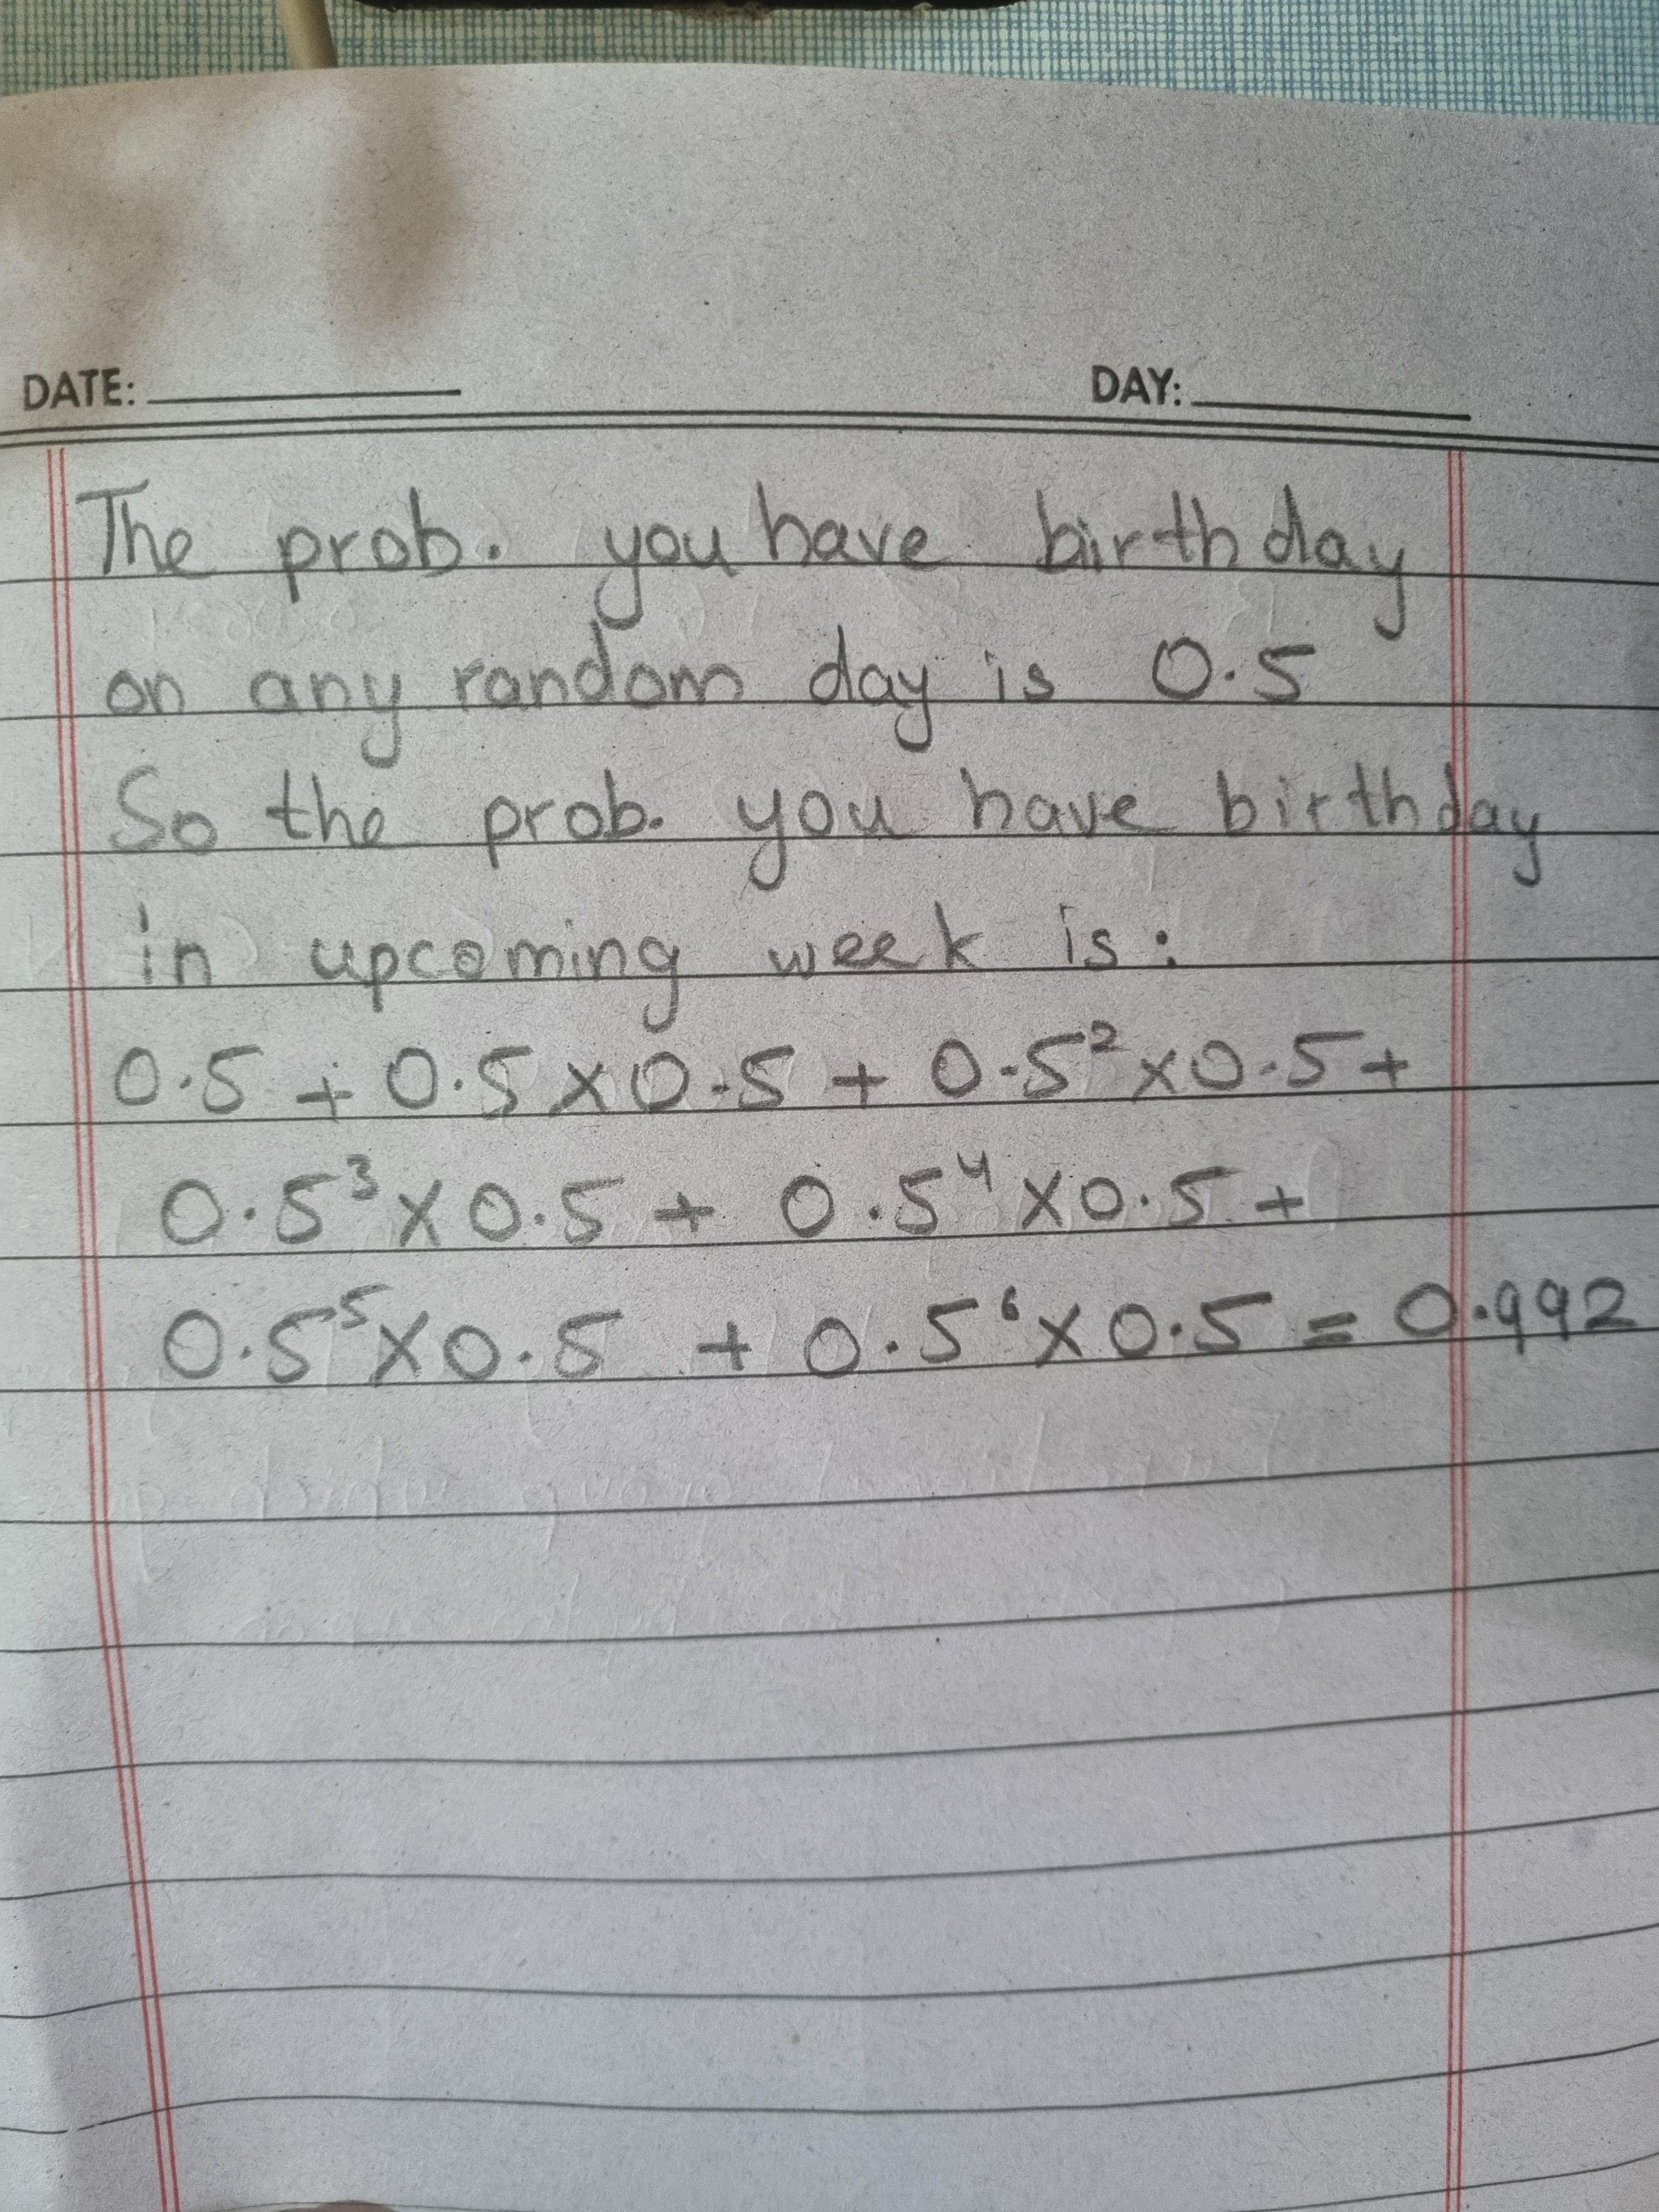 DATE: DAY:
The prob. you have birthday
on any random day is 0.5
So the prob. you have birthday
in upcoming week is:
0.5 + 0.5 × 0.5 + 0.5² × 0.5 +
0.5³ × 0.5 + 0.5⁴ × 0.5 +
0.5⁵ × 0.5 + 0.5⁶ × 0.5 = 0.992